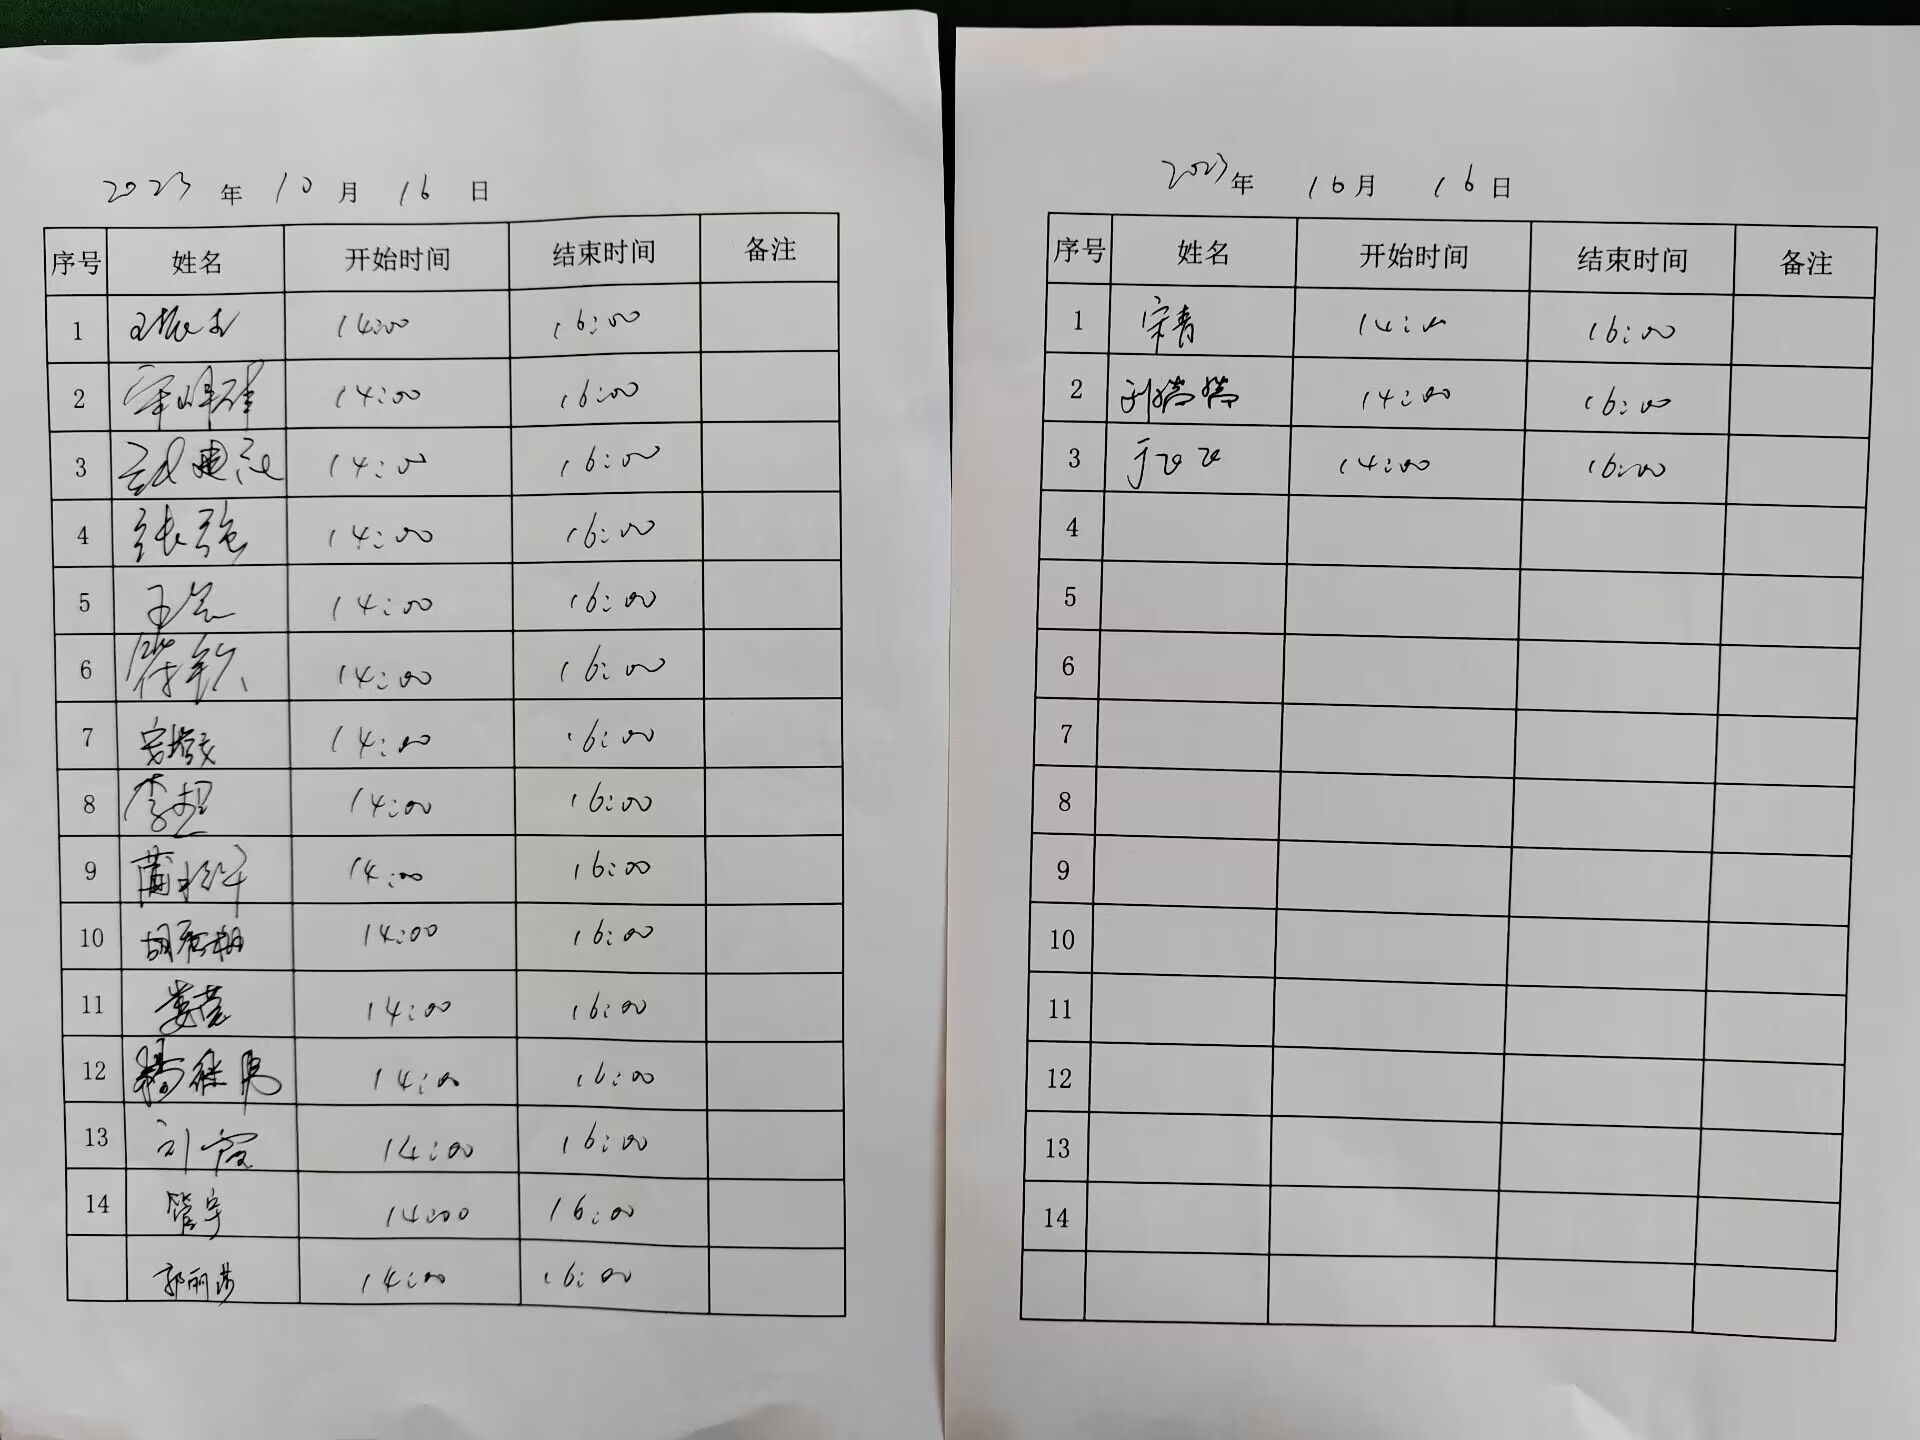 2023 年 10 月 16 日
序号 姓名 开始时间 结束时间 备注
1 14:00 16:00
2 14:00 16:00
3 14:00 16:00
4 张强 14:00 16:00
5 14:00 16:00
6 14:00 16:00
7 14:00 16:00
8 14:00 16:00
9 14:00 16:00
10 14:00 16:00
11 娄莹 14:00 16:00
12 14:00 16:00
13 刘霞 14:00 16:00
14 管宇 14:00 16:00
郭丽莎 14:00 16:00
2023年 10月 16日
序号 姓名 开始时间 结束时间 备注
1 宋青 14:00 16:00
2 14:00 16:00
3 14:00 16:00
4
5
6
7
8
9
10
11
12
13
14